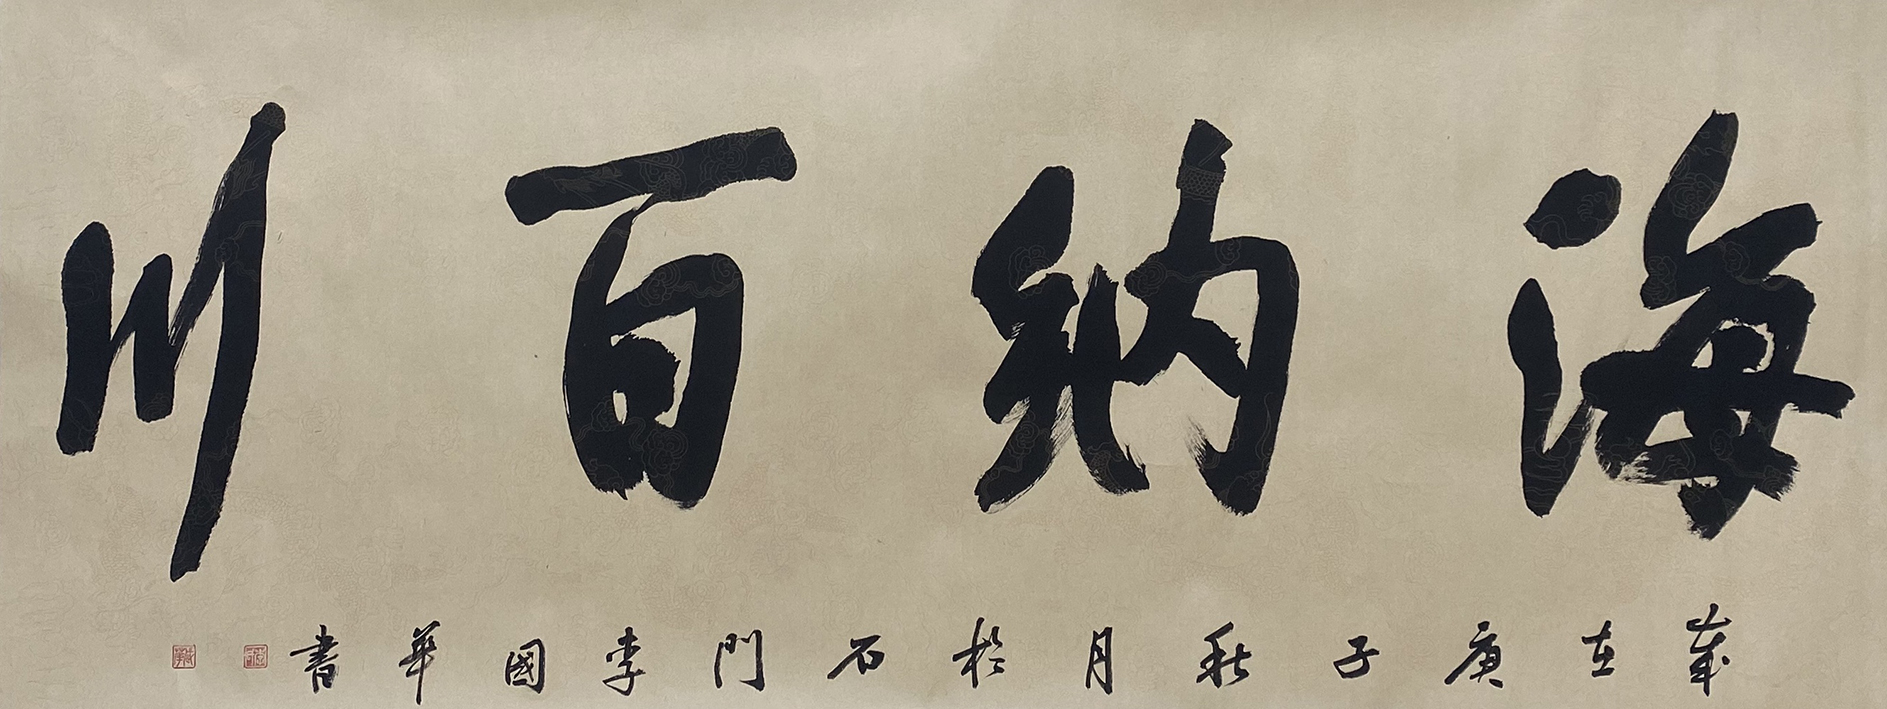 海納百川
歲在庚子秋月於石門李國華書